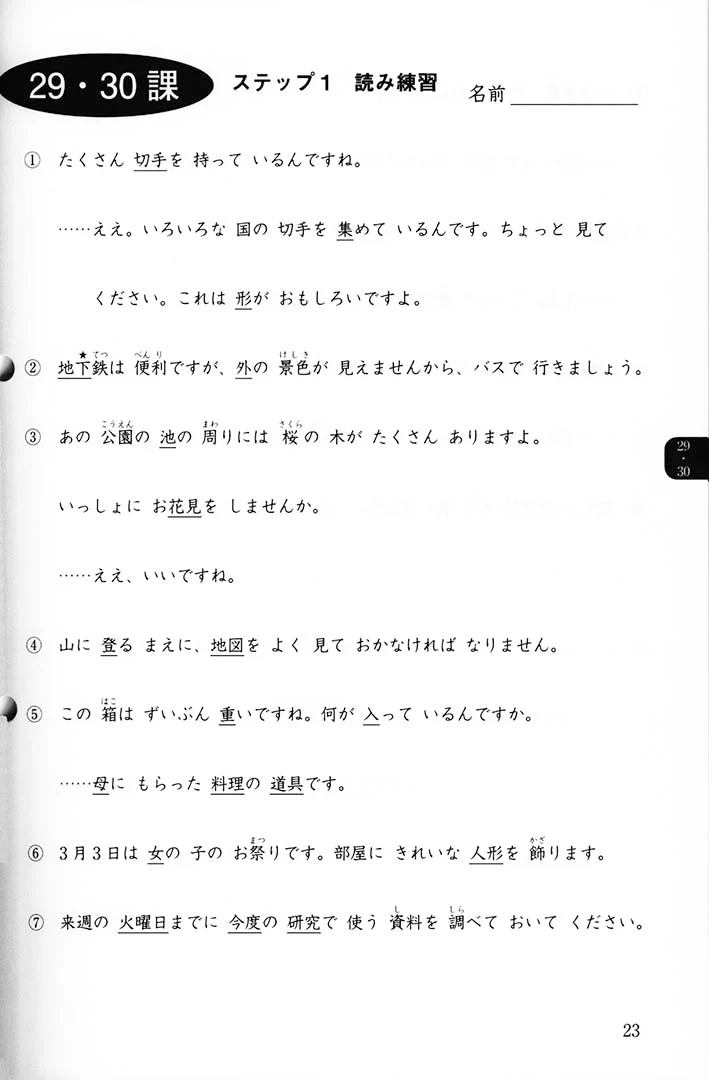 29・30課 ステップ1 読み練習 名前
① たくさん 切手を 持って いるんですね。
……ええ。いろいろな 国の 切手を 集めて いるんです。ちょっと 見て
ください。これは 形が おもしろいですよ。
★ てつ べんり けしき
② 地下鉄は 便利ですが、外の 景色が 見えませんから、バスで 行きましょう。
こうえん まわ さくら
③ あの 公園の 池の 周りには 桜の 木が たくさん ありますよ。
29・30
いっしょに お花見を しませんか。
……ええ、いいですね。
④ 山に 登る まえに、地図を よく 見て おかなければ なりません。
はこ
⑤ この 箱は ずいぶん 重いですね。何が 入って いるんですか。
……母に もらった 料理の 道具です。
まつ かざ
⑥ 3月3日は 女の 子の お祭りです。部屋に きれいな 人形を 飾ります。
し しら
⑦ 来週の 火曜日までに 今度の 研究で 使う 資料を 調べて おいて ください。
23